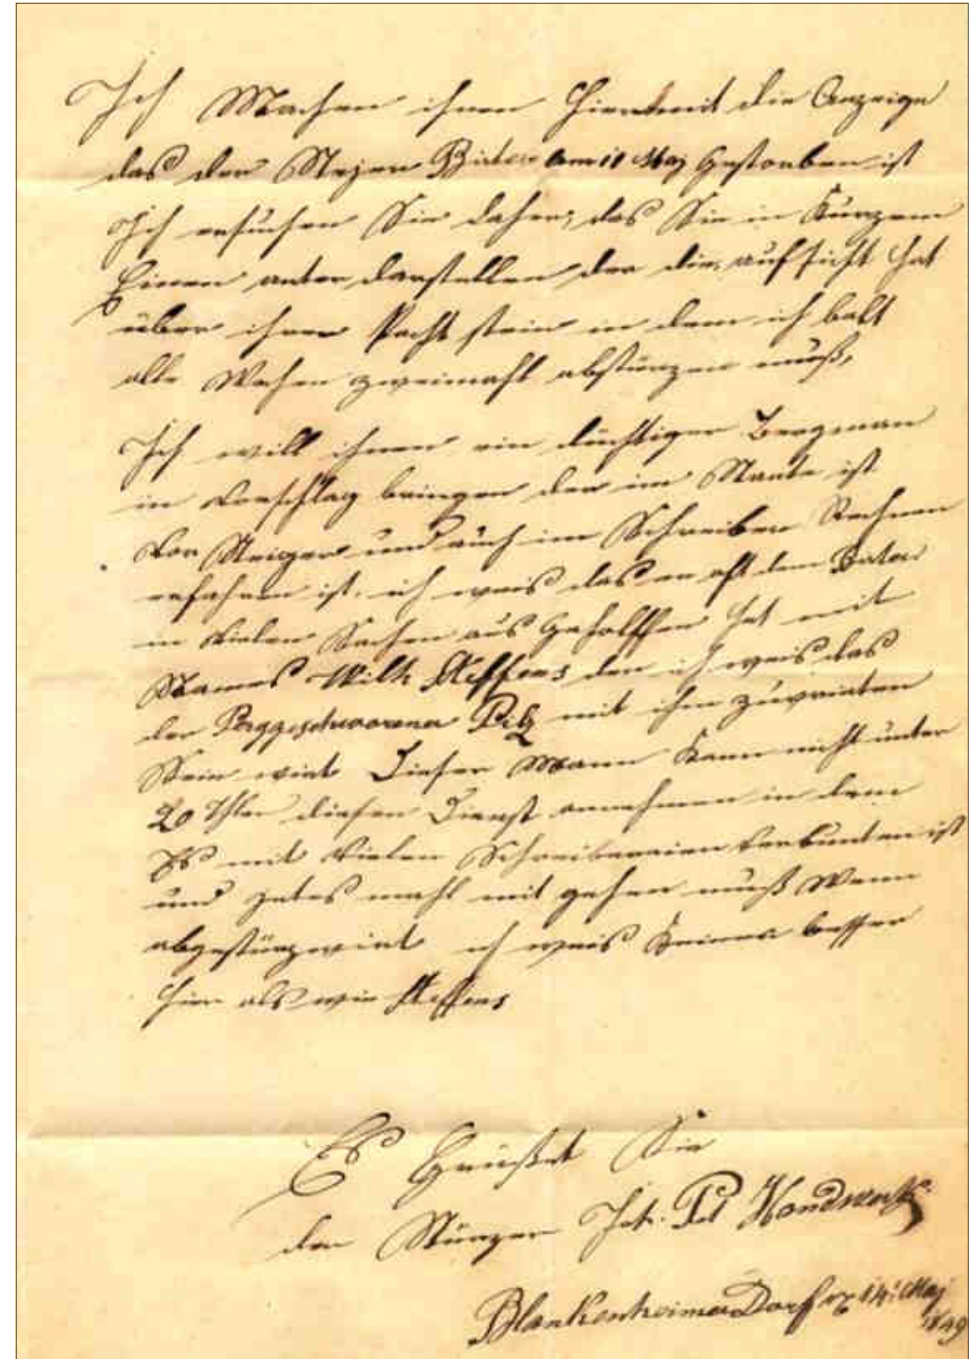 Ich Machen ihnen hiermit die Anzeige
das der Steiger am 11 Maj gestorben ist
Ich ersuchen Sie daher, das Sie in Kurzem
Einen anter darstellen der die aufsicht hat
über ihrer Pacht stein in dem ich balt
alle Wochen zweimahl abstürzen muß,
Ich will ihnen ein düchtiger Bergman
in Vorschlag bringen der im Stante ist
von Steiger und auch im Schreiben Rechnen
erfahren ist. ich weis das er oft dem
in vielen Sachen aus geholffen hat mit
Names Wilh Steffens den ich weis das
der Berggeschworener Pilz mit ihm zuvrieten
Sein wirt Dieser Mann kann nicht unter
20 Thler diesen Dienst annehmen in dem
Es mit vielen Schreibereien verbunten ist
und jetes mahl mit gehen muß Wenn
abgestürz wirt ich weis keiner besser
hier als wie Steffens
Es Grüßet Sie
der Stürzer Joh. Pet Handwerk
BlankenheimerDorf 14t Maj
1849